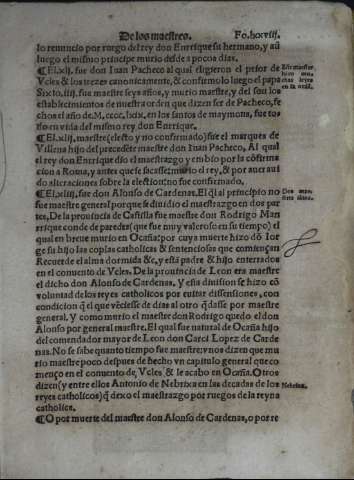 De los maestres. Fo.lxxviij.
lo renuncio por ruego del rey don Enrique su hermano, y aũ
luego el mismo principe murio desde a pocos dias.
¶ El .xlj. fue don Iuan Pacheco al qual eligieron el prior de
Vcles & los trezes canonicamente, & confirmolo luego el papa
Sixto .iiij. fue maestre seys años, y murio maestre, y del son los
establecimientos de nuestra orden que dizen ser de Pacheco, fe
chos el año de .M, cccc, lxix, en los santos de maymona, fue to
do en vida del mismo rey don Enrique.
Este maestre
hizo muchas leyes
en la orden.
¶ El .xlij. maestre (electo y no confirmado) fue el marques de
Villena hijo del precedẽte maestre don Iuan Pacheco, Al qual
el rey don Enrique dio el maestrazgo y embio por la cõfirma
cion a Roma, y antes que se sacasse, murio el rey, & por auer aui
do alteraciones sobre la election, no fue confirmado.
¶ El .xliij. fue don Alonso de Cardenas. El q̃l al principio no
fue maestre general porque se diuidio el maestrazgo en dos par
tes, De la prouincia de Castilla fue maestre don Rodrigo Man
rrique conde de paredes (que fue muy valeroso en su tiempo) el
qual en breue murio en Ocaña: por cuya muerte hizo dõ Ior
ge su hijo las coplas catholicas & sentenciosas que comiençan
Recuerde el alma dormida &c, y está padre & hijo enterrados
en el conuento de Vcles. De la prouincia de Leon era maestre
el dicho don Alonso de Cardenas. Y esta diuision se hizo cõ
voluntad de los reyes catholicos por euitar dissensiones, con
condicion q̃ el que viuiesse de dias al otro q̃dasse por maestre
general. Y como murio el maestre don Rodrigo quedo el don
Alonso por general maestre. El qual fue natural de Ocaña hijo
del comendador mayor de Leon don Garci Lopez de Carde
nas. No se sabe quanto tiempo fue maestre: vnos dizen que mu
rio maestre poco despues de hecho vn capitulo general que co
menço en el conuento de Vcles & le acabo en Ocaña. Otros
dizen (y entre ellos Antonio de Nebrixa en las decadas de los
reyes catholicos) q̃ dexo el maestrazgo por ruegos de la reyna
catholica.
Nebrixa.
¶ O por muerte del maestre don Alonso de Cardenas, o por re